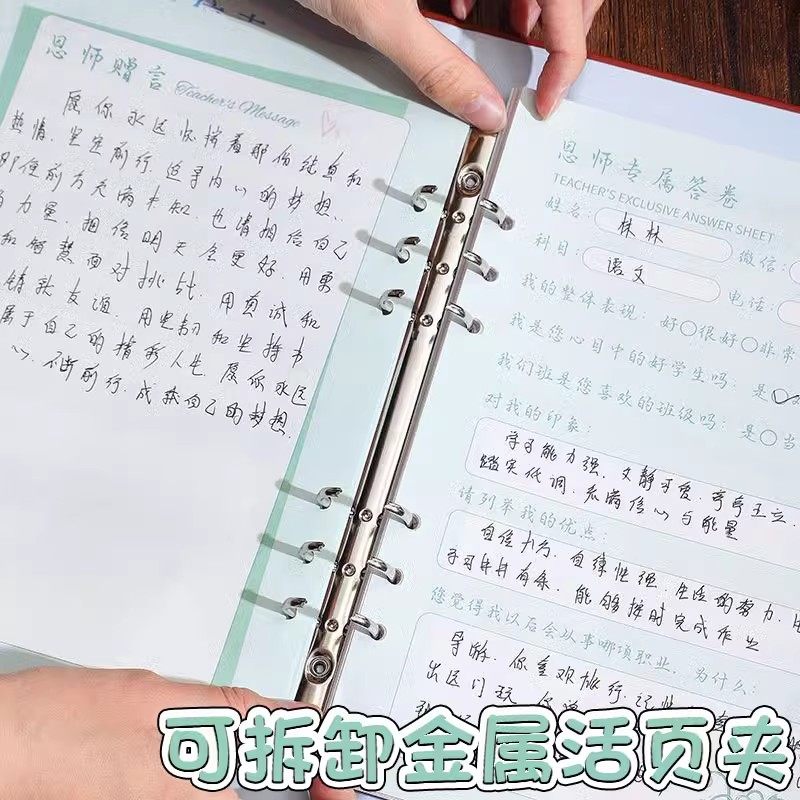 恩师赠言 Teacher's Message
愿你永远怀揣着那份纯真和
热情,坚定前行,追寻内心的梦想,
那便前方充满未知,也请相信自己
力量,相信明天会更好,用爱
和智慧面对挑战,用真诚和
友谊,用坚韧和坚持书
属于自己的精彩人生,愿你永远
心,不断前行,成就自己的梦想.
恩师专属答卷
TEACHER'S EXCLUSIVE ANSWER SHEET
姓名: 林林 微信:
科目: 语文 电话:
我的整体表现: 好○很好○非常
我是您心目中的好学生吗: 是
我们班是您喜欢的班级吗: 是○当
对我的印象:
学习能力强,文静可爱,亭亭玉立,
踏实低调,充满信心与能量
请列举我的优点:
自信十分,自律性强,生活的努力,
学习井井有条,能够按时完成作业
您觉得我以后会从事哪项职业,为什么:
导游,你喜欢旅行,记
出远门玩
可拆卸金属活页夹